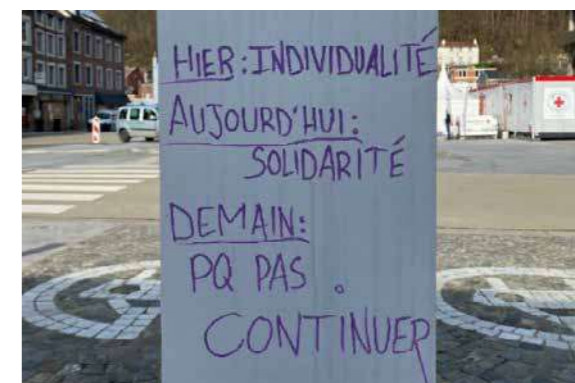 HIER: INDIVIDUALITÉ
AUJOURD'HUI:
SOLIDARITÉ
DEMAIN:
PQ PAS .
CONTINUER